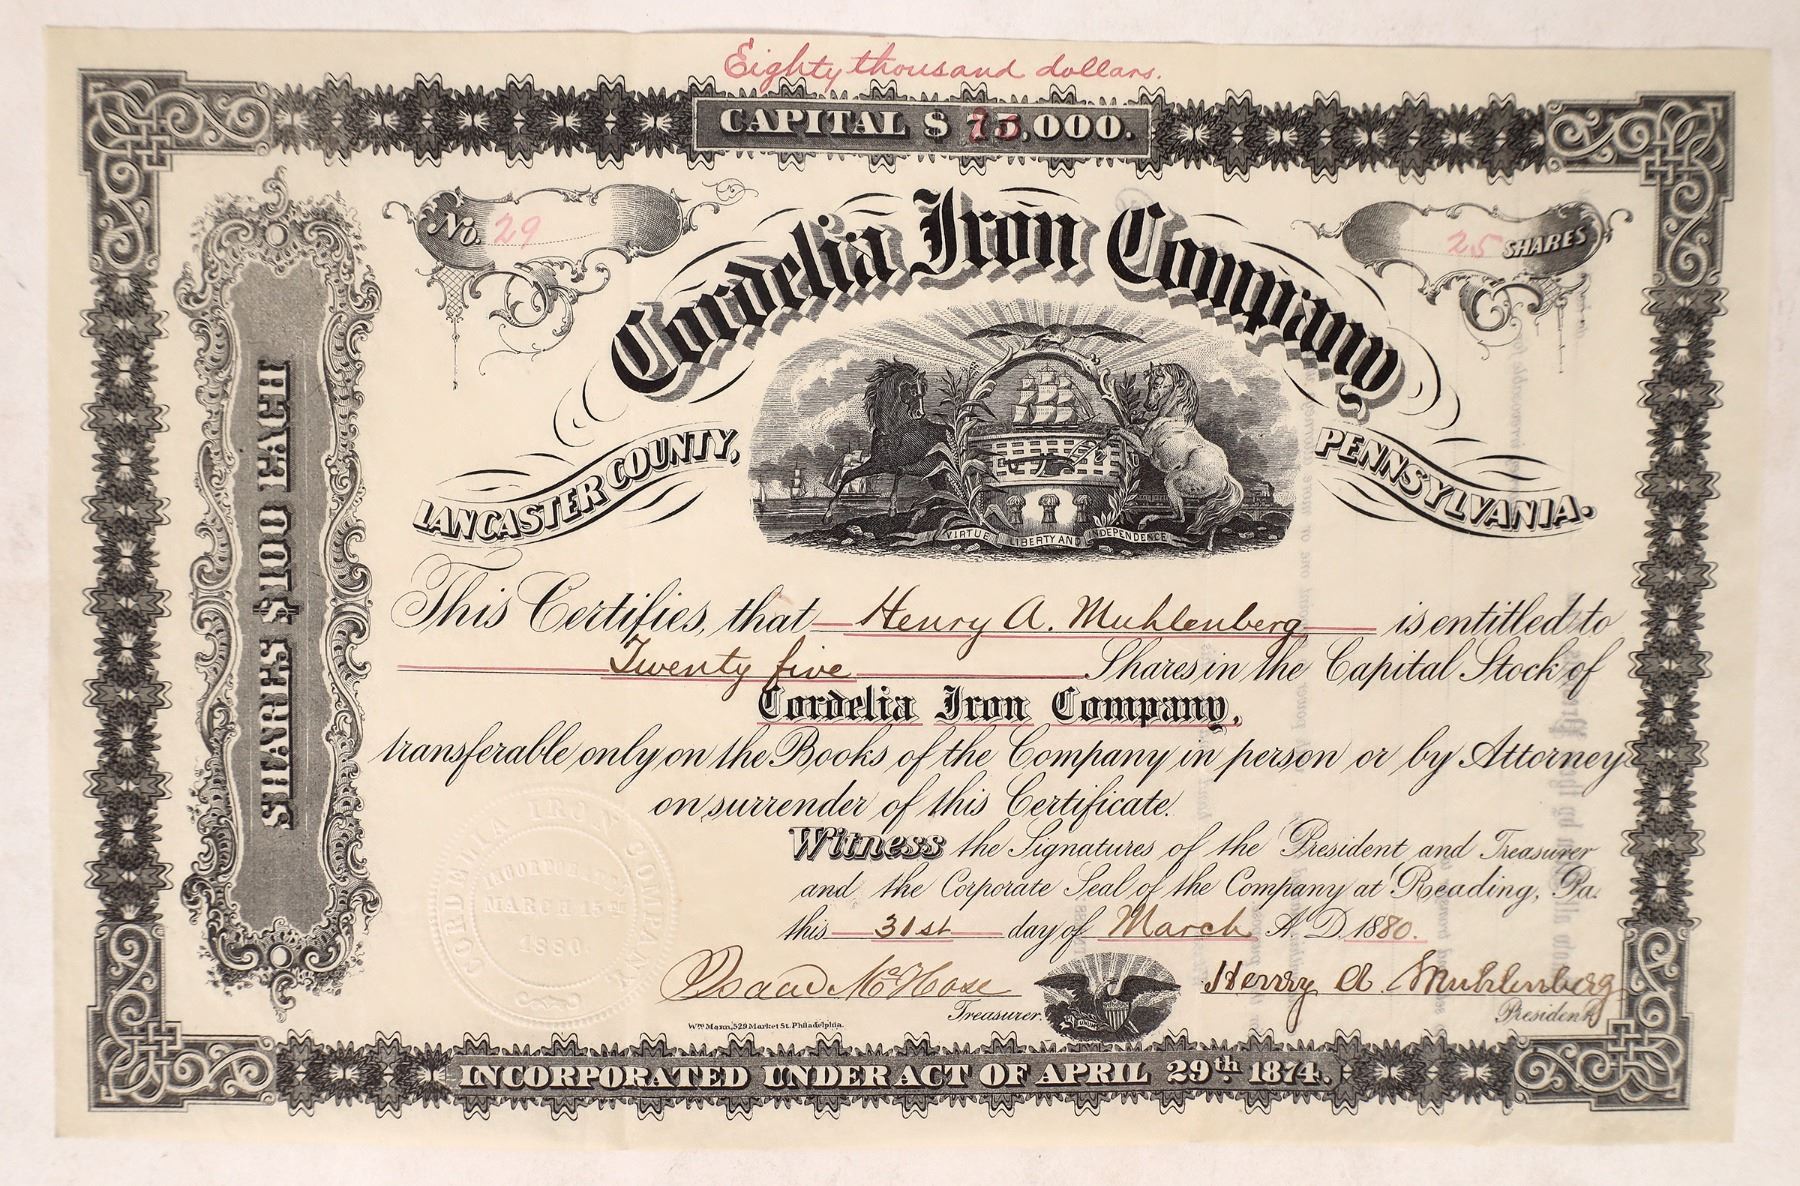 Eighty thousand dollars.
CAPITAL $ 75,000.
No. 29
25 SHARES
Cordelia Iron Company
LANCASTER COUNTY,
PENNSYLVANIA.
VIRTUE LIBERTY AND INDEPENDENCE
SHARES $100 EACH
This Certifies, that Henry A. Muhlenberg is entitled to
Twenty five Shares in the Capital Stock of
Cordelia Iron Company,
transferable only on the Books of the Company in person or by Attorney
on surrender of this Certificate.
Witness the Signatures of the President and Treasurer
and the Corporate Seal of the Company at Reading, Pa.
this 31st day of March A.D. 1880.
CORDELIA IRON COMPANY
INCORPORATED
MARCH 15th
1880
Isaac McHose
Treasurer.
Henry A. Muhlenberg
President
Wm Mann, 529 Market St. Philadelphia.
INCORPORATED UNDER ACT OF APRIL 29th 1874.